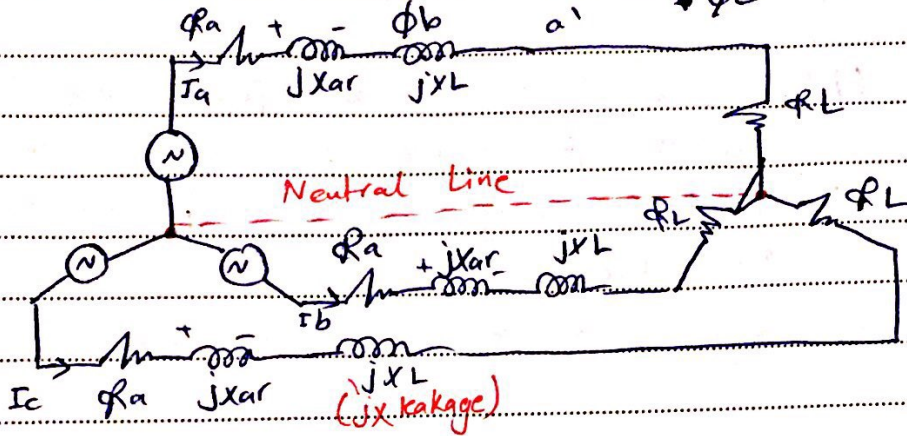 Ra + - Φb a'
Ia jXar jXL
RL
N
Neutral Line
RL RL
N N
Ra + jXar - jXL
Ib
+ -
Ic Ra jXar jXL
(jx kakage)